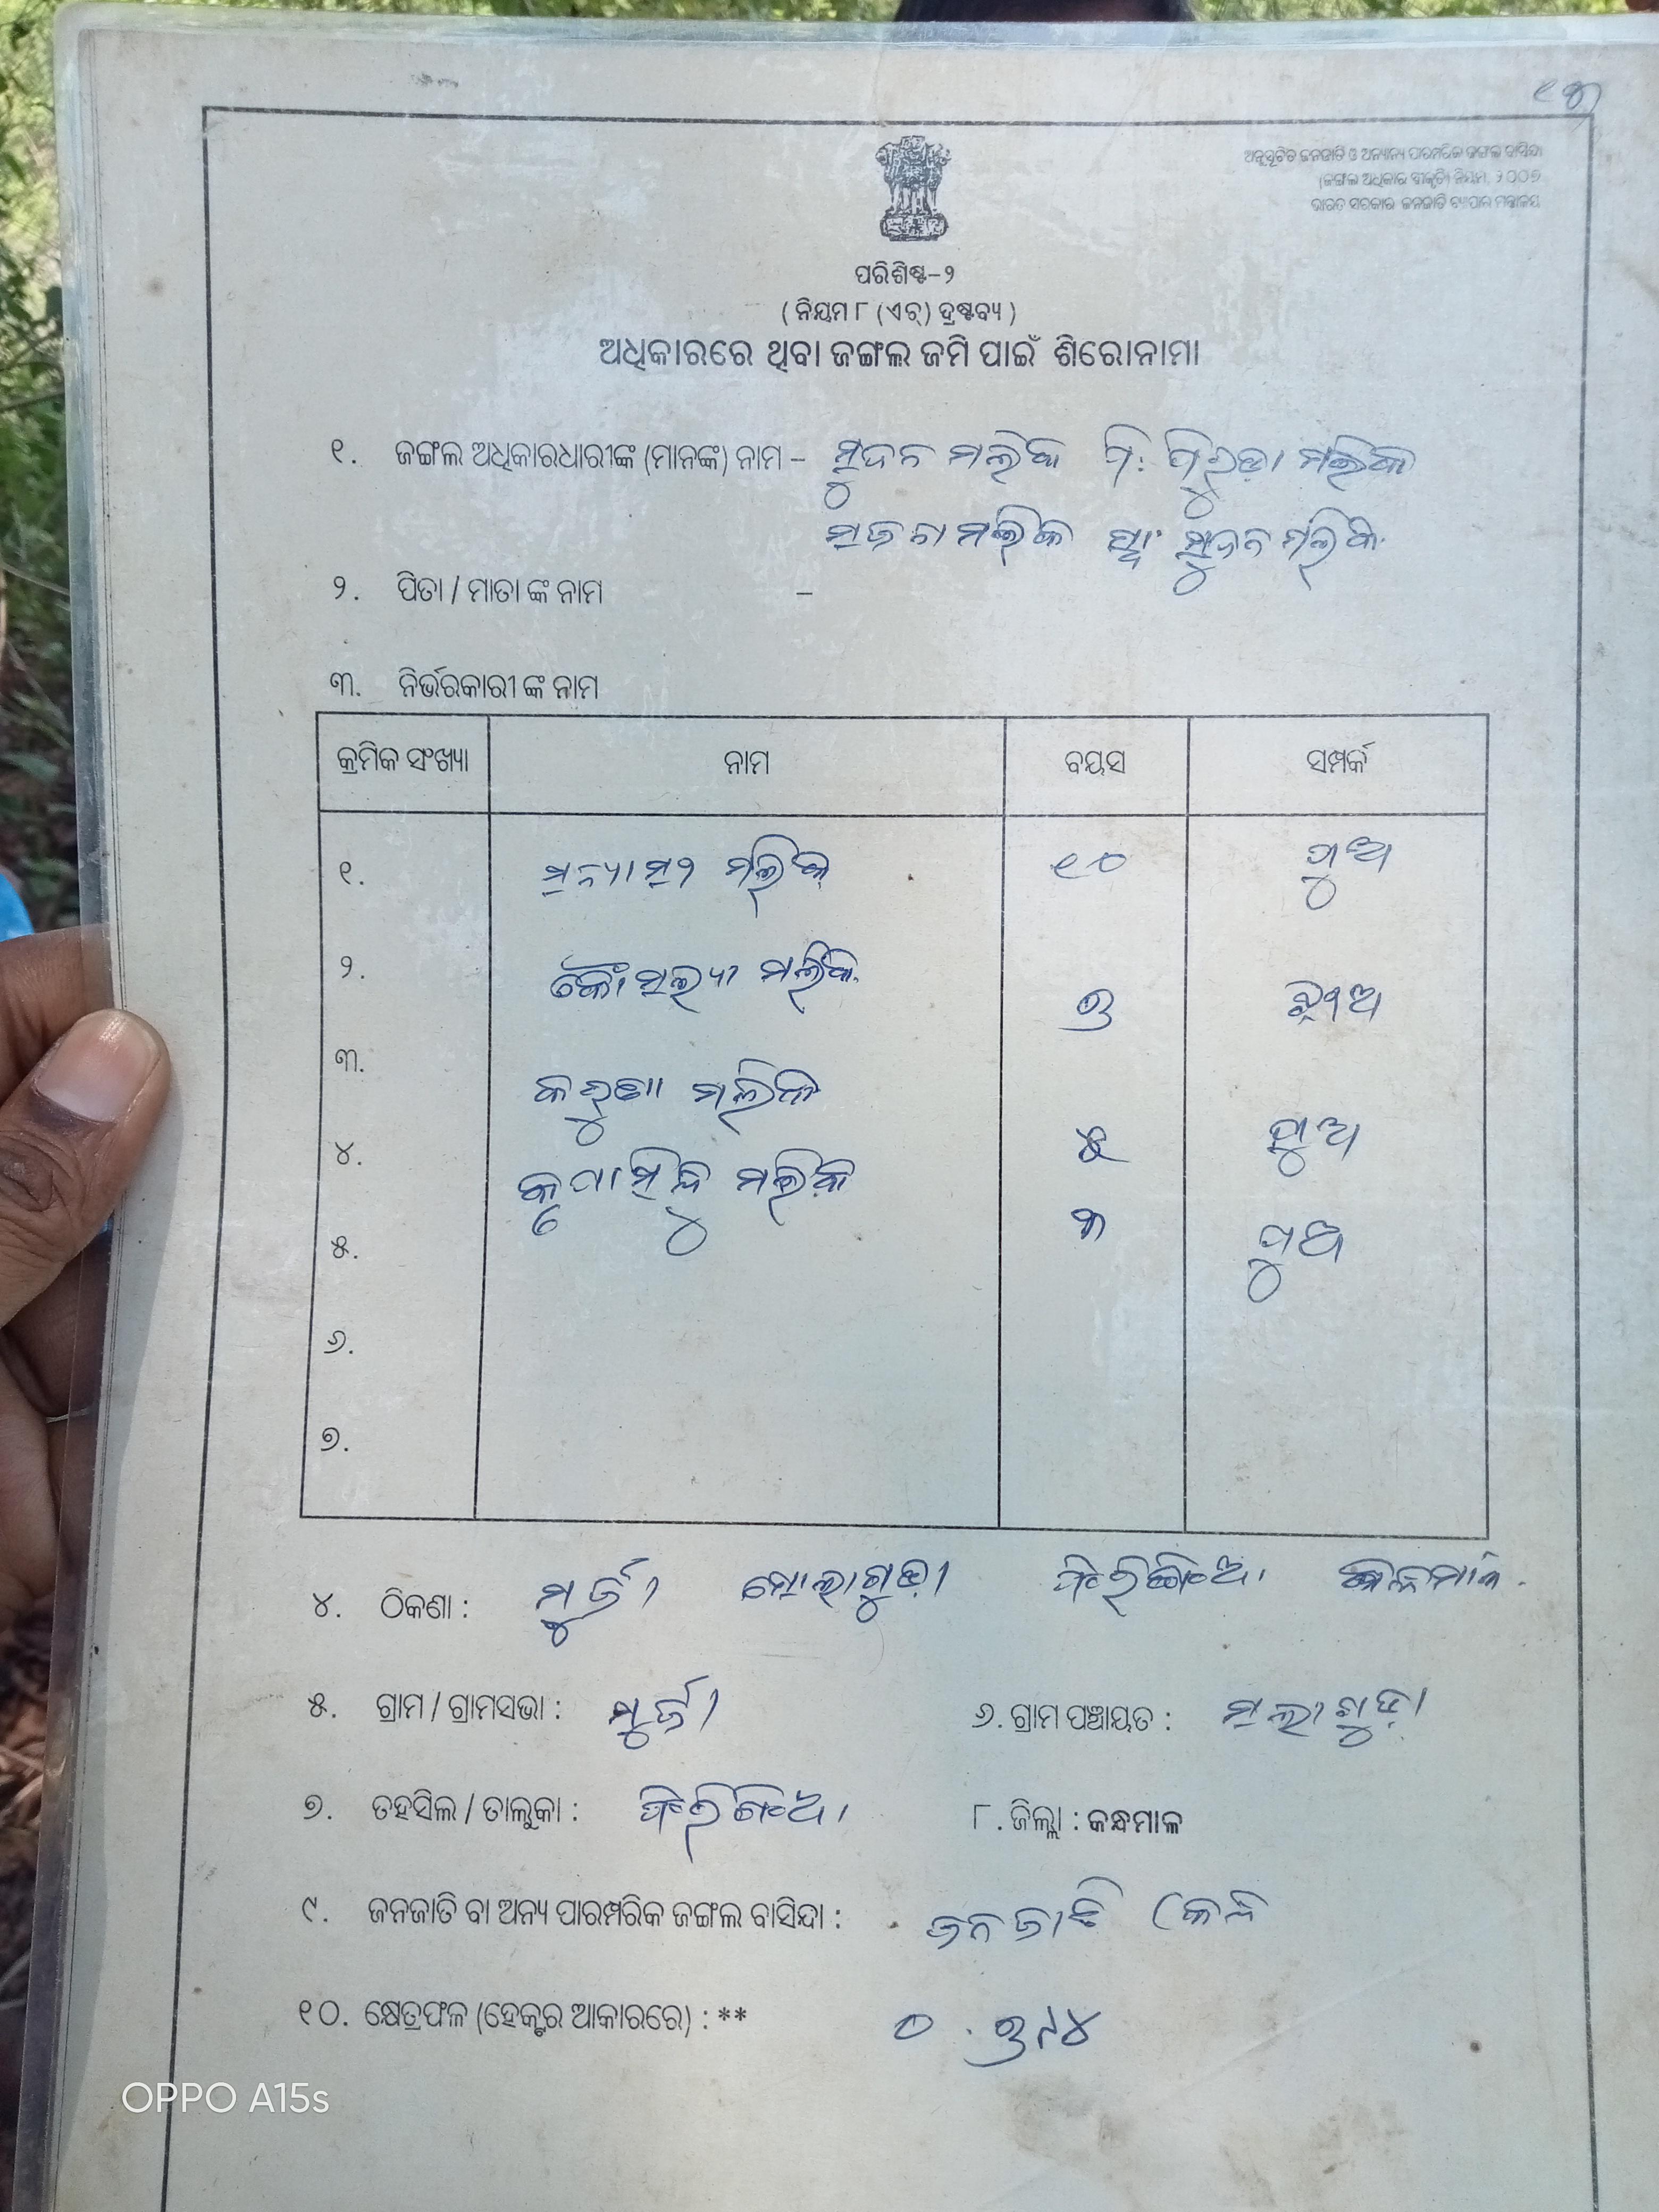 ୧୩
ଅନୁସୂଚିତ ଜନଜାତି ଓ ଅନ୍ୟାନ୍ୟ ପାରମ୍ପରିକ ଜଙ୍ଗଲ ବାସିନ୍ଦା
(ଜଙ୍ଗଲ ଅଧିକାର ସ୍ୱୀକୃତି) ନିୟମ, ୨୦୦୭
ଭାରତ ସରକାର ଜନଜାତି ବ୍ୟାପାର ମନ୍ତ୍ରାଳୟ
ପରିଶିଷ୍ଟ-୨
( ନିୟମ ୮ (ଏଚ୍) ଦ୍ରଷ୍ଟବ୍ୟ )
ଅଧିକାରରେ ଥିବା ଜଙ୍ଗଲ ଜମି ପାଇଁ ଶିରୋନାମା
୧. ଜଙ୍ଗଲ ଅଧିକାରଧାରୀଙ୍କ (ମାନଙ୍କ) ନାମ – ମଲିକ ପି: ମଲିକ
ମଲିକ ସ୍ୱା: ମଲିକ
୨. ପିତା / ମାତା ଙ୍କ ନାମ –
୩. ନିର୍ଭରକାରୀ ଙ୍କ ନାମ
କ୍ରମିକ ସଂଖ୍ୟା ନାମ ବୟସ ସମ୍ପର୍କ
୧. ସନ୍ୟାସୀ ମଲିକ ୧୦ ପୁଅ
୨. କୌଶଲ୍ୟା ମଲିକ ୭ ଝିଅ
୩. କରୁଣା ମଲିକ ୫ ପୁଅ
୪. କୃପାସିନ୍ଧୁ ମଲିକ ୩ ପୁଅ
୫.
୬.
୭.
୪. ଠିକଣା : ମୁର୍ଡା ସଲାଗୁଡ଼ା ଫିରିଙ୍ଗିଆ କନ୍ଧମାଳ
୫. ଗ୍ରାମ / ଗ୍ରାମସଭା : ମୁର୍ଡା ୬. ଗ୍ରାମ ପଞ୍ଚାୟତ : ସଲାଗୁଡ଼ା
୭. ତହସିଲ / ତାଲୁକା : ଫିରିଙ୍ଗିଆ ୮. ଜିଲ୍ଲା : କନ୍ଧମାଳ
୯. ଜନଜାତି ବା ଅନ୍ୟ ପାରମ୍ପରିକ ଜଙ୍ଗଲ ବାସିନ୍ଦା : ଜନଜାତି (କନ୍ଧ
୧୦. କ୍ଷେତ୍ରଫଳ (ହେକ୍ଟର ଆକାରରେ) : ** ୦.୭୯୪
OPPO A15s